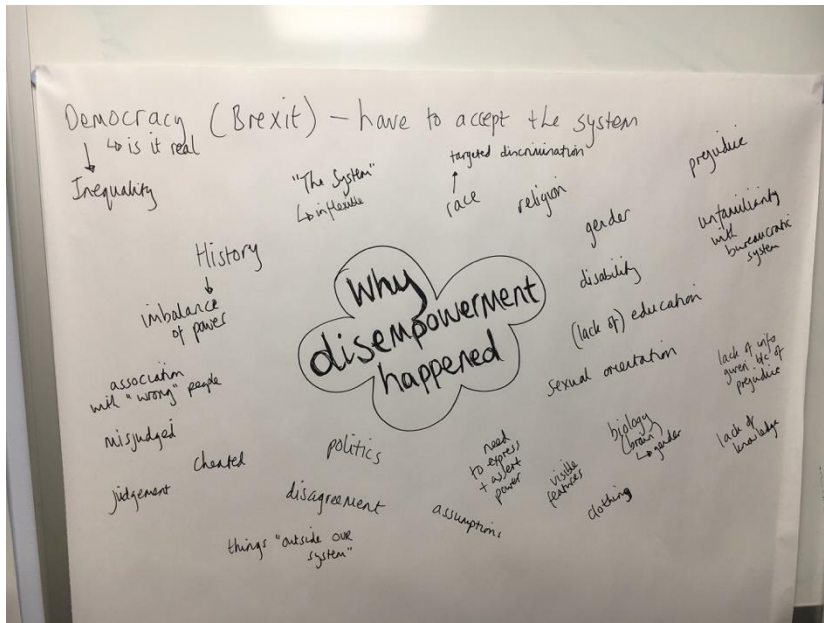 Democracy (Brexit) – have to accept the system
↳ is it real
Inequality
"The System"
↳ inflexible
targeted discrimination
race
religion
prejudice
gender
unfamiliarity
with
bureaucratic
system
History
imbalance
of power
Why
disempowerment
happened
disability
(lack of) education
sexual orientation
lack of info
given b/c of
prejudice
association
with "wrong" people
misjudged
cheated
judgement
politics
disagreement
things "outside our
system"
need
to express
+ assert
power
assumptions
visible
features
biology
(brain)
↳ gender
clothing
lack of
knowledge